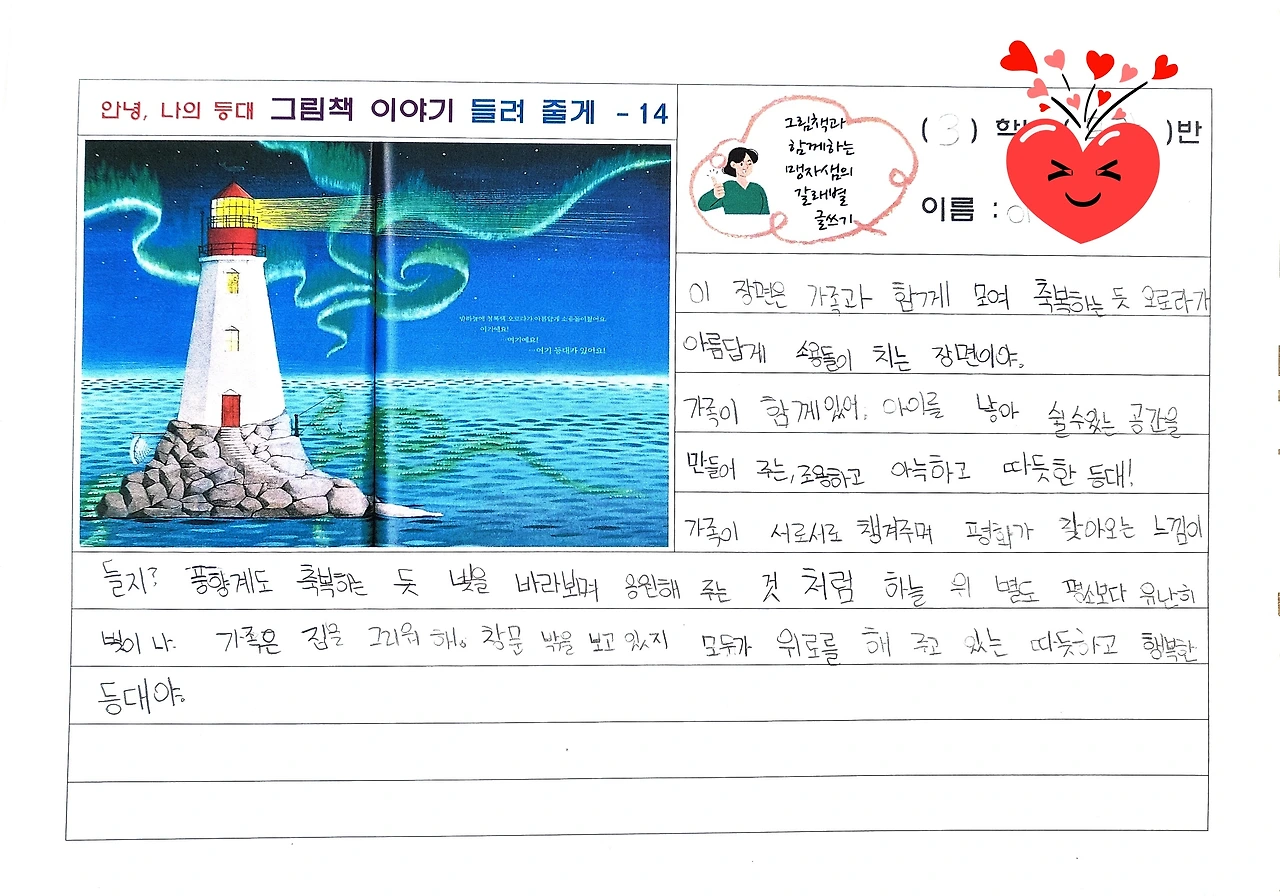 안녕, 나의 등대 그림책 이야기 들려 줄게 - 14
그림책과
함께하는
맹자샘의
갈래별
글쓰기
( 3 ) 학 ( )반
이름 :
밤하늘에 축복의 오로라가 아름답게 소용돌이쳤어요.
여기예요!
…여기예요!
…여기 등대가 있어요!
이 장면은 가족과 함께 모여 축복하는 듯 오로라가
아름답게 소용돌이 치는 장면이야.
가족이 함께있어, 아이를 낳아 쉴수있는 공간을
만들어 주는, 조용하고 아늑하고 따듯한 등대!
가족이 서로서로 챙겨주며 평화가 찾아오는 느낌이
들지? 풍향계도 축복하는 듯 빛을 바라보며 응원해 주는 것 처럼 하늘 위 별도 평소보다 유난히
빛이 나. 가족은 집을 그리워 해. 창문 밖을 보고 있지 모두가 위로를 해 주고 있는 따듯하고 행복한
등대야.